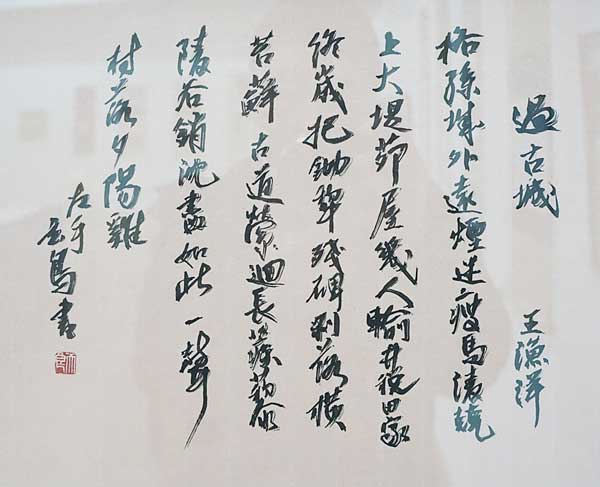 過古城 王漁洋
格孫城外遠煙迷瘦馬凌兢
上大堤茆屋幾人輸井稅田家
終歲把鋤犁殘碑剝落橫
苔蘚古道縈迴長蒺藜
陵谷銷沈盡如此一聲
村落夕陽雞
左手
鳥書